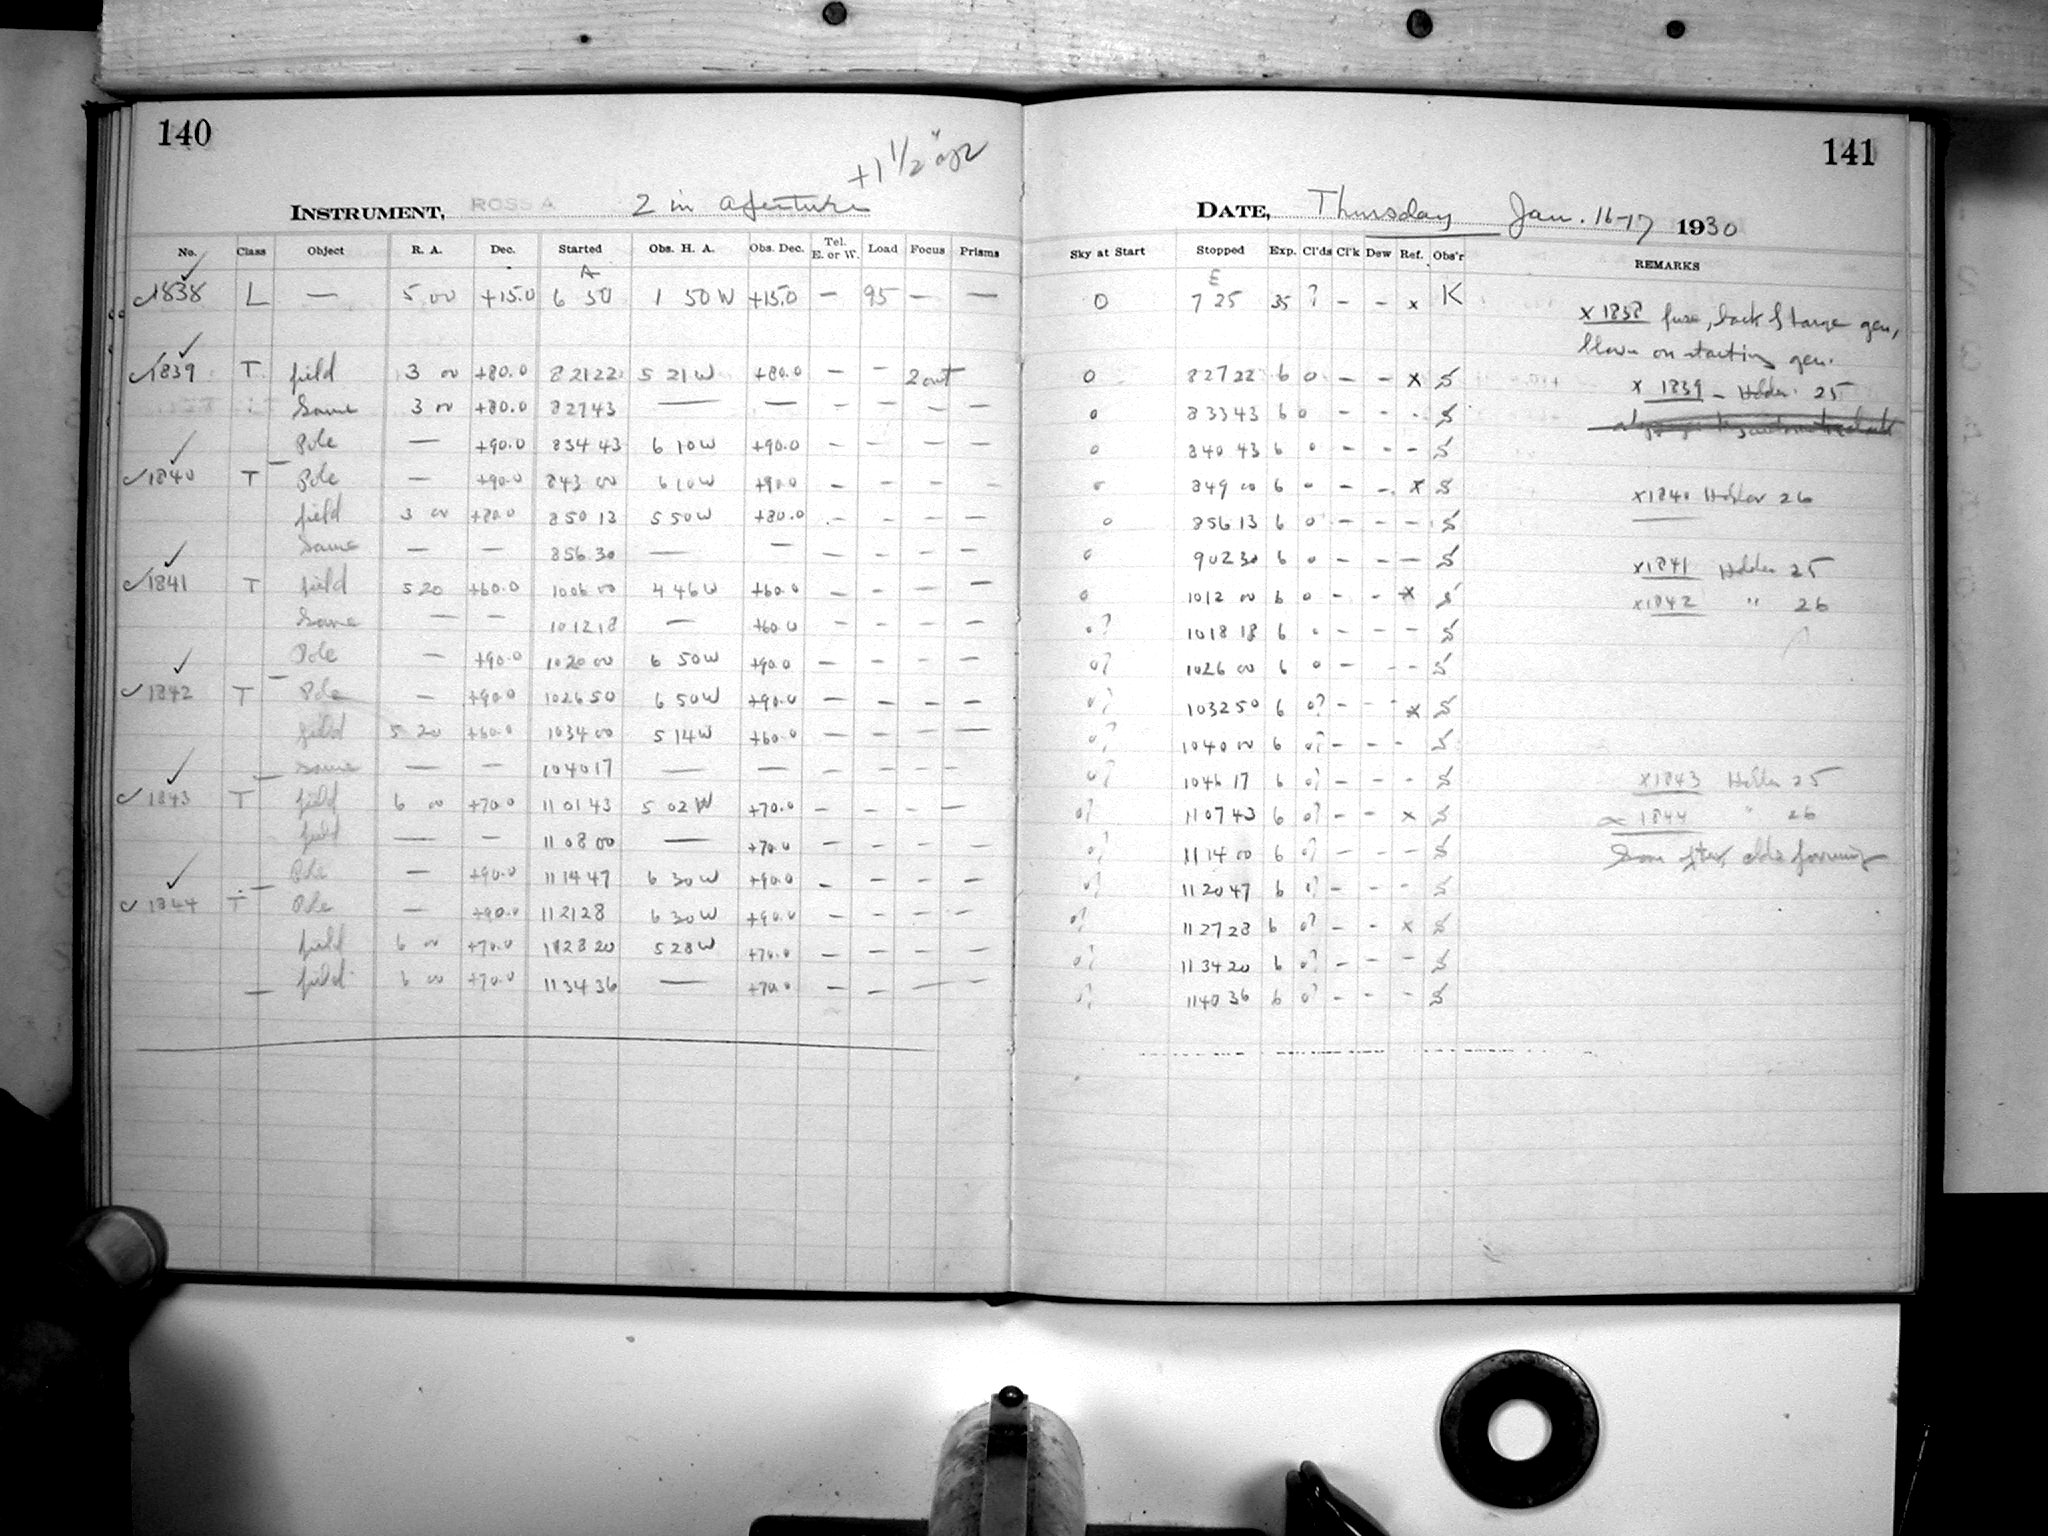 140
+1 1/2"
INSTRUMENT, ROSS A 2 in aperture
No. Class Object R. A. Dec. Started Obs. H. A. Obs. Dec. Tel. E. or W. Load Focus Prisms
A
1838 L — 5 00 +15.0 6 50 1 50 W +15.0 — 95 — —
1839 T field 3 00 +80.0 8 21 22 5 21 W +80.0 — — 2 out
Same 3 00 +80.0 8 27 43 — — — — — —
Pole — +90.0 8 34 43 6 10 W +90.0 — — — —
1840 T Pole — +90.0 8 43 00 6 10 W +90.0 — — — —
field 3 00 +80.0 8 50 13 5 50 W +80.0 — — — —
Same — — 8 56 30 — — — — — —
1841 T field 5 20 +60.0 10 06 00 4 46 W +60.0 — — — —
Same — — 10 12 18 — +60.0 — — — —
Pole — +90.0 10 20 00 6 50 W +90.0 — — — —
1842 T Pole — +90.0 10 26 50 6 50 W +90.0 — — — —
field 5 20 +60.0 10 34 00 5 14 W +60.0 — — — —
Same — — 10 40 17 — — — — — —
1843 T field 6 00 +70.0 11 01 43 5 02 W +70.0 — — — —
field — — 11 08 00 — +70.0 — — — —
Pole — +90.0 11 14 47 6 30 W +90.0 — — — —
1844 T Pole — +90.0 11 21 28 6 30 W +90.0 — — — —
field 6 00 +70.0 11 28 20 5 28 W +70.0 — — — —
field 6 00 +70.0 11 34 36 — +70.0 — — — —
141
DATE, Thursday Jan. 16-17 1930
Sky at Start Stopped Exp. Cl'ds Cl'k Dew Ref. Obs'r REMARKS
E
0 7 25 35 ? — — x K
x 1838 fuse, back of large gen,
blown on starting gen.
0 8 27 22 6 0 — — x S x 1839 — Holder 25
0 8 33 43 6 0 — — - S
0 8 40 43 6 0 — — — S
0 8 49 00 6 0 — — x S x1840 Holder 26
0 8 56 13 6 0 — — — S
0 9 02 30 6 0 — — — S x1841 Holder 25
0 10 12 00 6 0 — — x S x1842 " 26
0? 10 18 18 6 0 — — — S
0? 10 26 00 6 0 — — — S
0? 10 32 50 6 0? — — x S
0? 10 40 00 6 0? — — — S
0? 10 46 17 6 0? — — — S x1843 Holder 25
0? 11 07 43 6 0? — — x S x 1844 " 26
0? 11 14 00 6 0? — — — S Soon after, clds forming
0? 11 20 47 6 0? — — — S
0? 11 27 28 6 0? — — x S
0? 11 34 20 6 0? — — — S
0? 11 40 36 6 0? — — — S